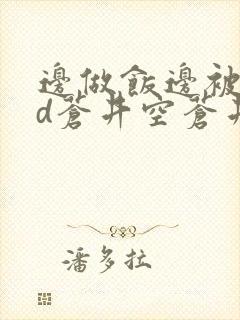 邊做飯邊被
d蒼井空蒼井
潘多拉